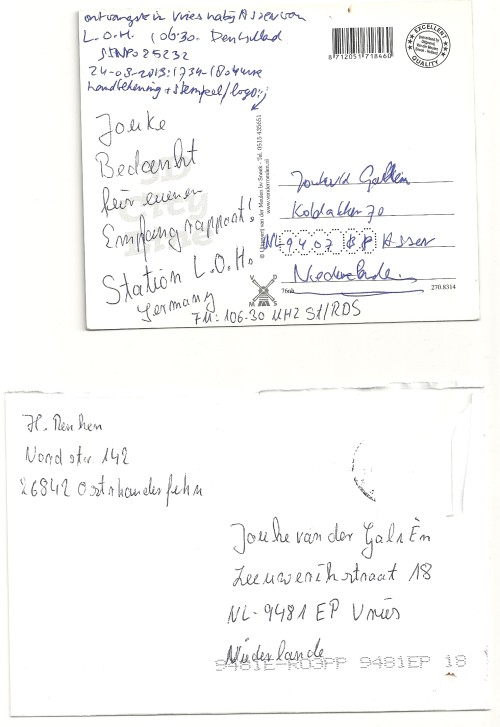 ontvangst in Vries nabij Assen van
L.O.H. 106.30 - Deutschland
SINPO 25232
24-08-2013: 1734-1804 uur
handtekening + stempel/logo:;
8 712051 718460
EXCELLENT
QUALITY
Jouke
Bedankt
für euren
Empfang rapport!
Station L.O.H.
Germany
FM: 106.30 MHZ St/RDS
© Uitgeverij van der Meulen bv Sneek - Tel. 0515-425651
www.vondermeulen.nl
Jouke vd Galiën
Koldakker 70
NL- 9407 BP Assen
Niederlande
V M S
270.8314
H. Renken
Nordstr. 142
26842 Ostrhauderfehn
Jouke van der Galièn
Leeuwerikstraat 18
NL-9481 EP Vries
Niederlande
9481E-R03PP 9481EP 18